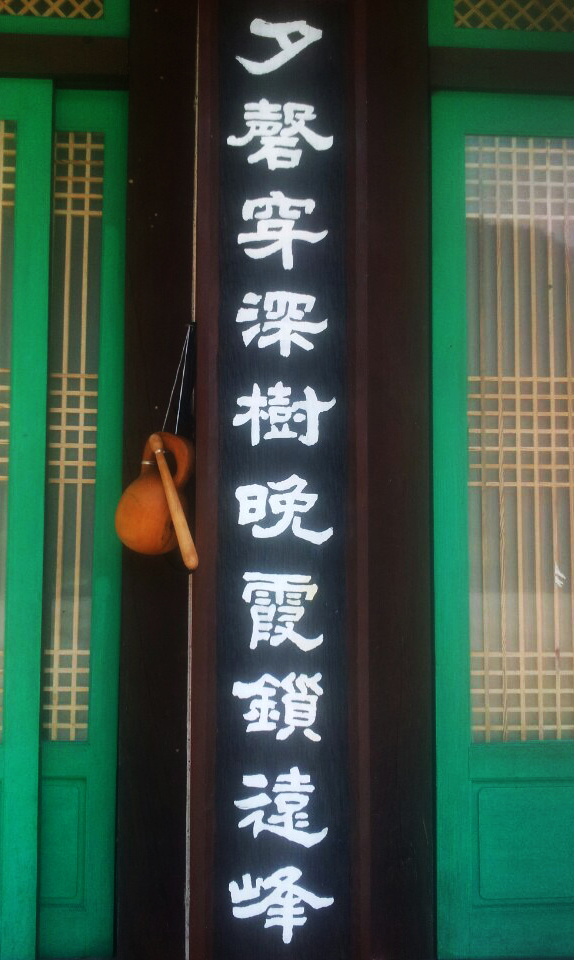 夕磬穿深樹晩霞鎖遠峰